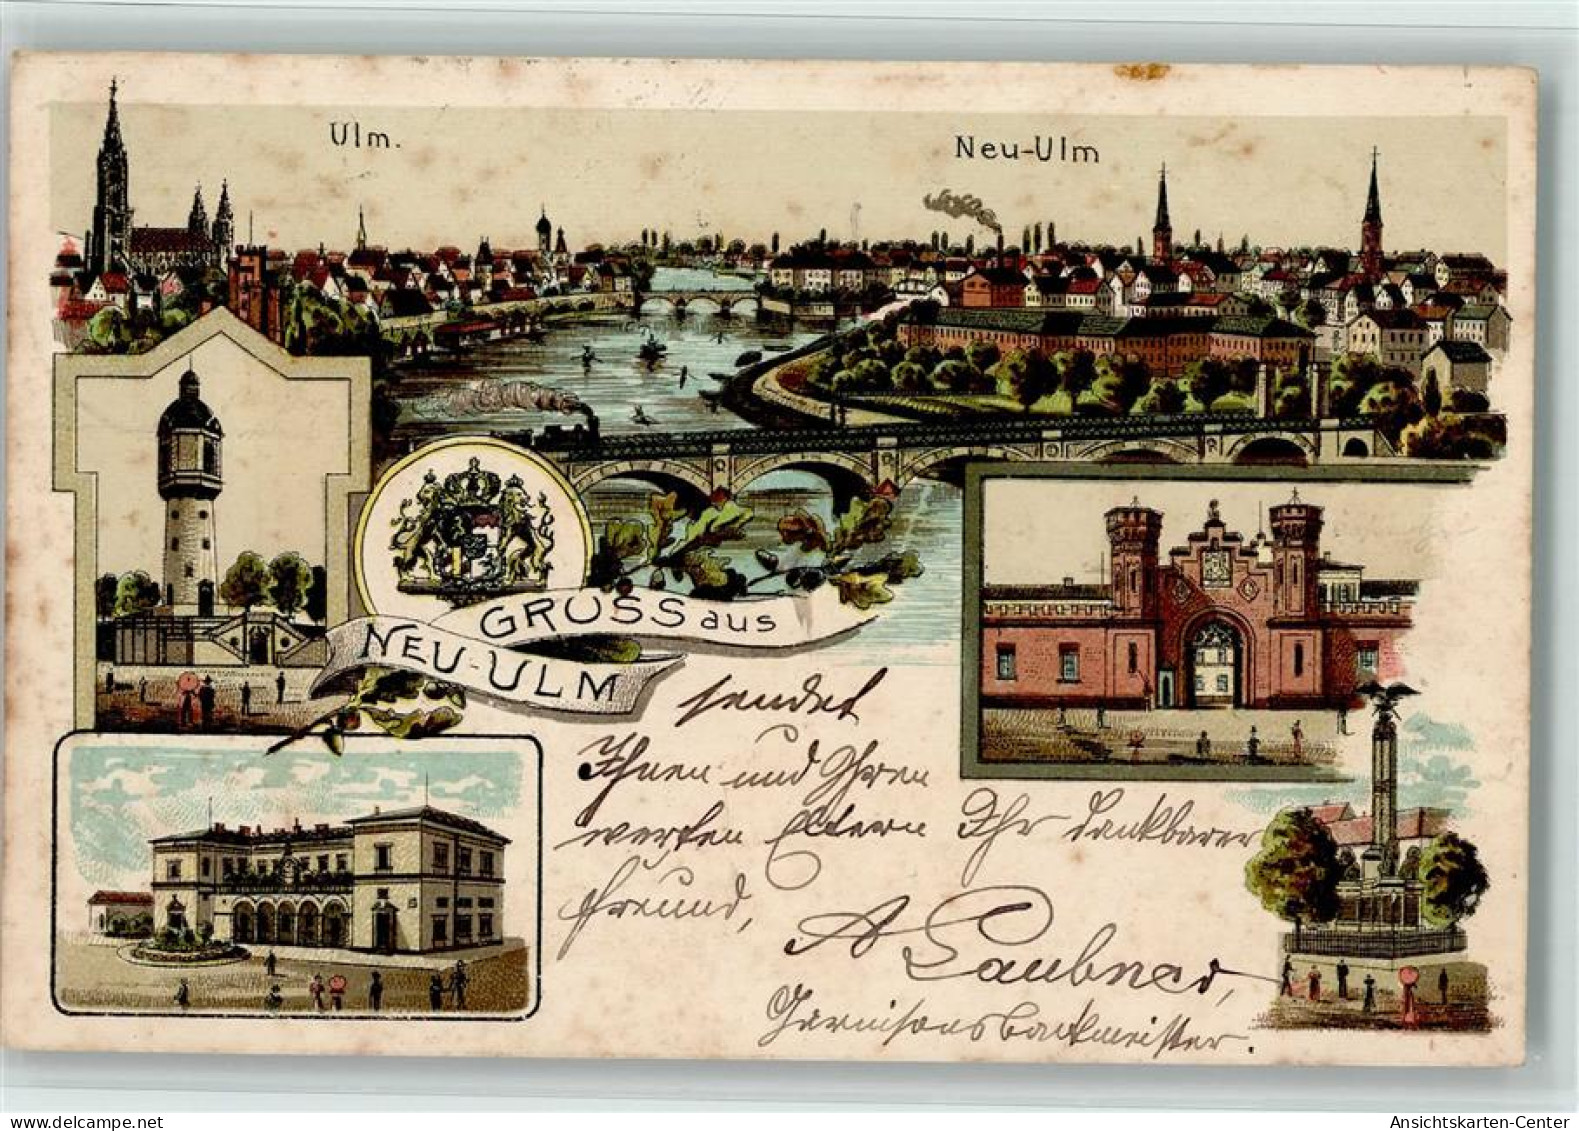 Ulm.
Neu-Ulm
GRUSS aus
NEU-ULM
sendet
Ihnen und Ihren
werten Eltern Ihr dankbarer
Freund,
A Laubner,
Garnisonsbaumeister.
Ansichtskarten-Center